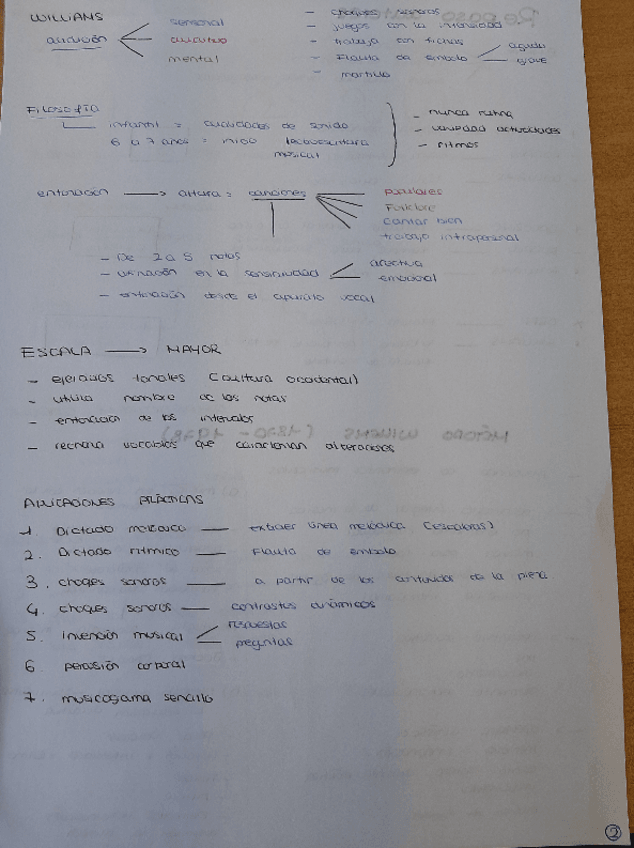 WILLIAMS
audición
sensorial
auditivo
mental
- choques sonoros
- juegos con la intensidad
- trabaja con fichas
- Flauta de émbolo
agudo
grave
- martillo
FILOSOFÍA
infantil = cualidades de sonido
6 a 7 años = inicio lectoescritura
musical
- nunca rutina
- variedad actividades
- ritmos
entonación → altura = canciones
populares
Folklore
cantar bien
trabajo intrapersonal
- De 2 a 5 notas
- en la sensitividad
afectiva
emocional
- entonación desde el aparato vocal
ESCALA → MAYOR
- ejercicios tonales (cultura occidental)
- utiliza nombre de las notas
- entonación de los intervalos
- rechaza vocablos que alteraciones
APLICACIONES PRÁCTICAS
1. Dictado melódico — extraer línea melódica (escaleras)
2. Dictado rítmico — Flauta de émbolo
3. choques sonoros — a partir de los contenidos de la pieza
4. choques sonoros — contrastes dinámicos
5. invención musical
respuestas
preguntas
6. percusión corporal
7. musicograma sencillo
2